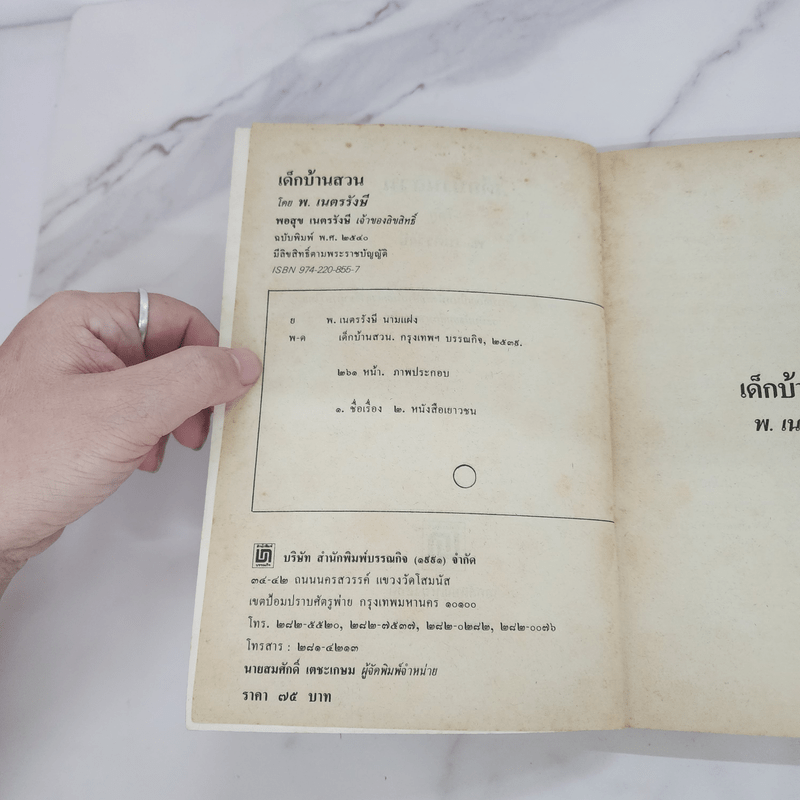 เด็กบ้านสวน
โดย พ. เนตรรังษี
พอสุข เนตรรังษี เจ้าของลิขสิทธิ์
ฉบับพิมพ์ พ.ศ. ๒๕๔๐
มีลิขสิทธิ์ตามพระราชบัญญัติ
ISBN 974-220-855-7
ย พ. เนตรรังษี นามแฝง
พ-ด เด็กบ้านสวน. กรุงเทพฯ บรรณกิจ, ๒๕๓๙.
๒๖๑ หน้า. ภาพประกอบ
๑. ชื่อเรื่อง ๒. หนังสือเยาวชน
บริษัท สำนักพิมพ์บรรณกิจ (๑๙๙๑) จำกัด
๓๔-๔๒ ถนนนครสวรรค์ แขวงวัดโสมนัส
เขตป้อมปราบศัตรูพ่าย กรุงเทพมหานคร ๑๐๑๐๐
โทร. ๒๘๒-๕๕๒๐, ๒๘๒-๗๕๓๗, ๒๘๒-๐๒๘๒, ๒๘๒-๐๐๗๖
โทรสาร : ๒๘๑-๔๒๑๓
นายสมศักดิ์ เตชะเกษม ผู้จัดพิมพ์จำหน่าย
ราคา ๗๕ บาท
เด็กบ้า
พ. เน